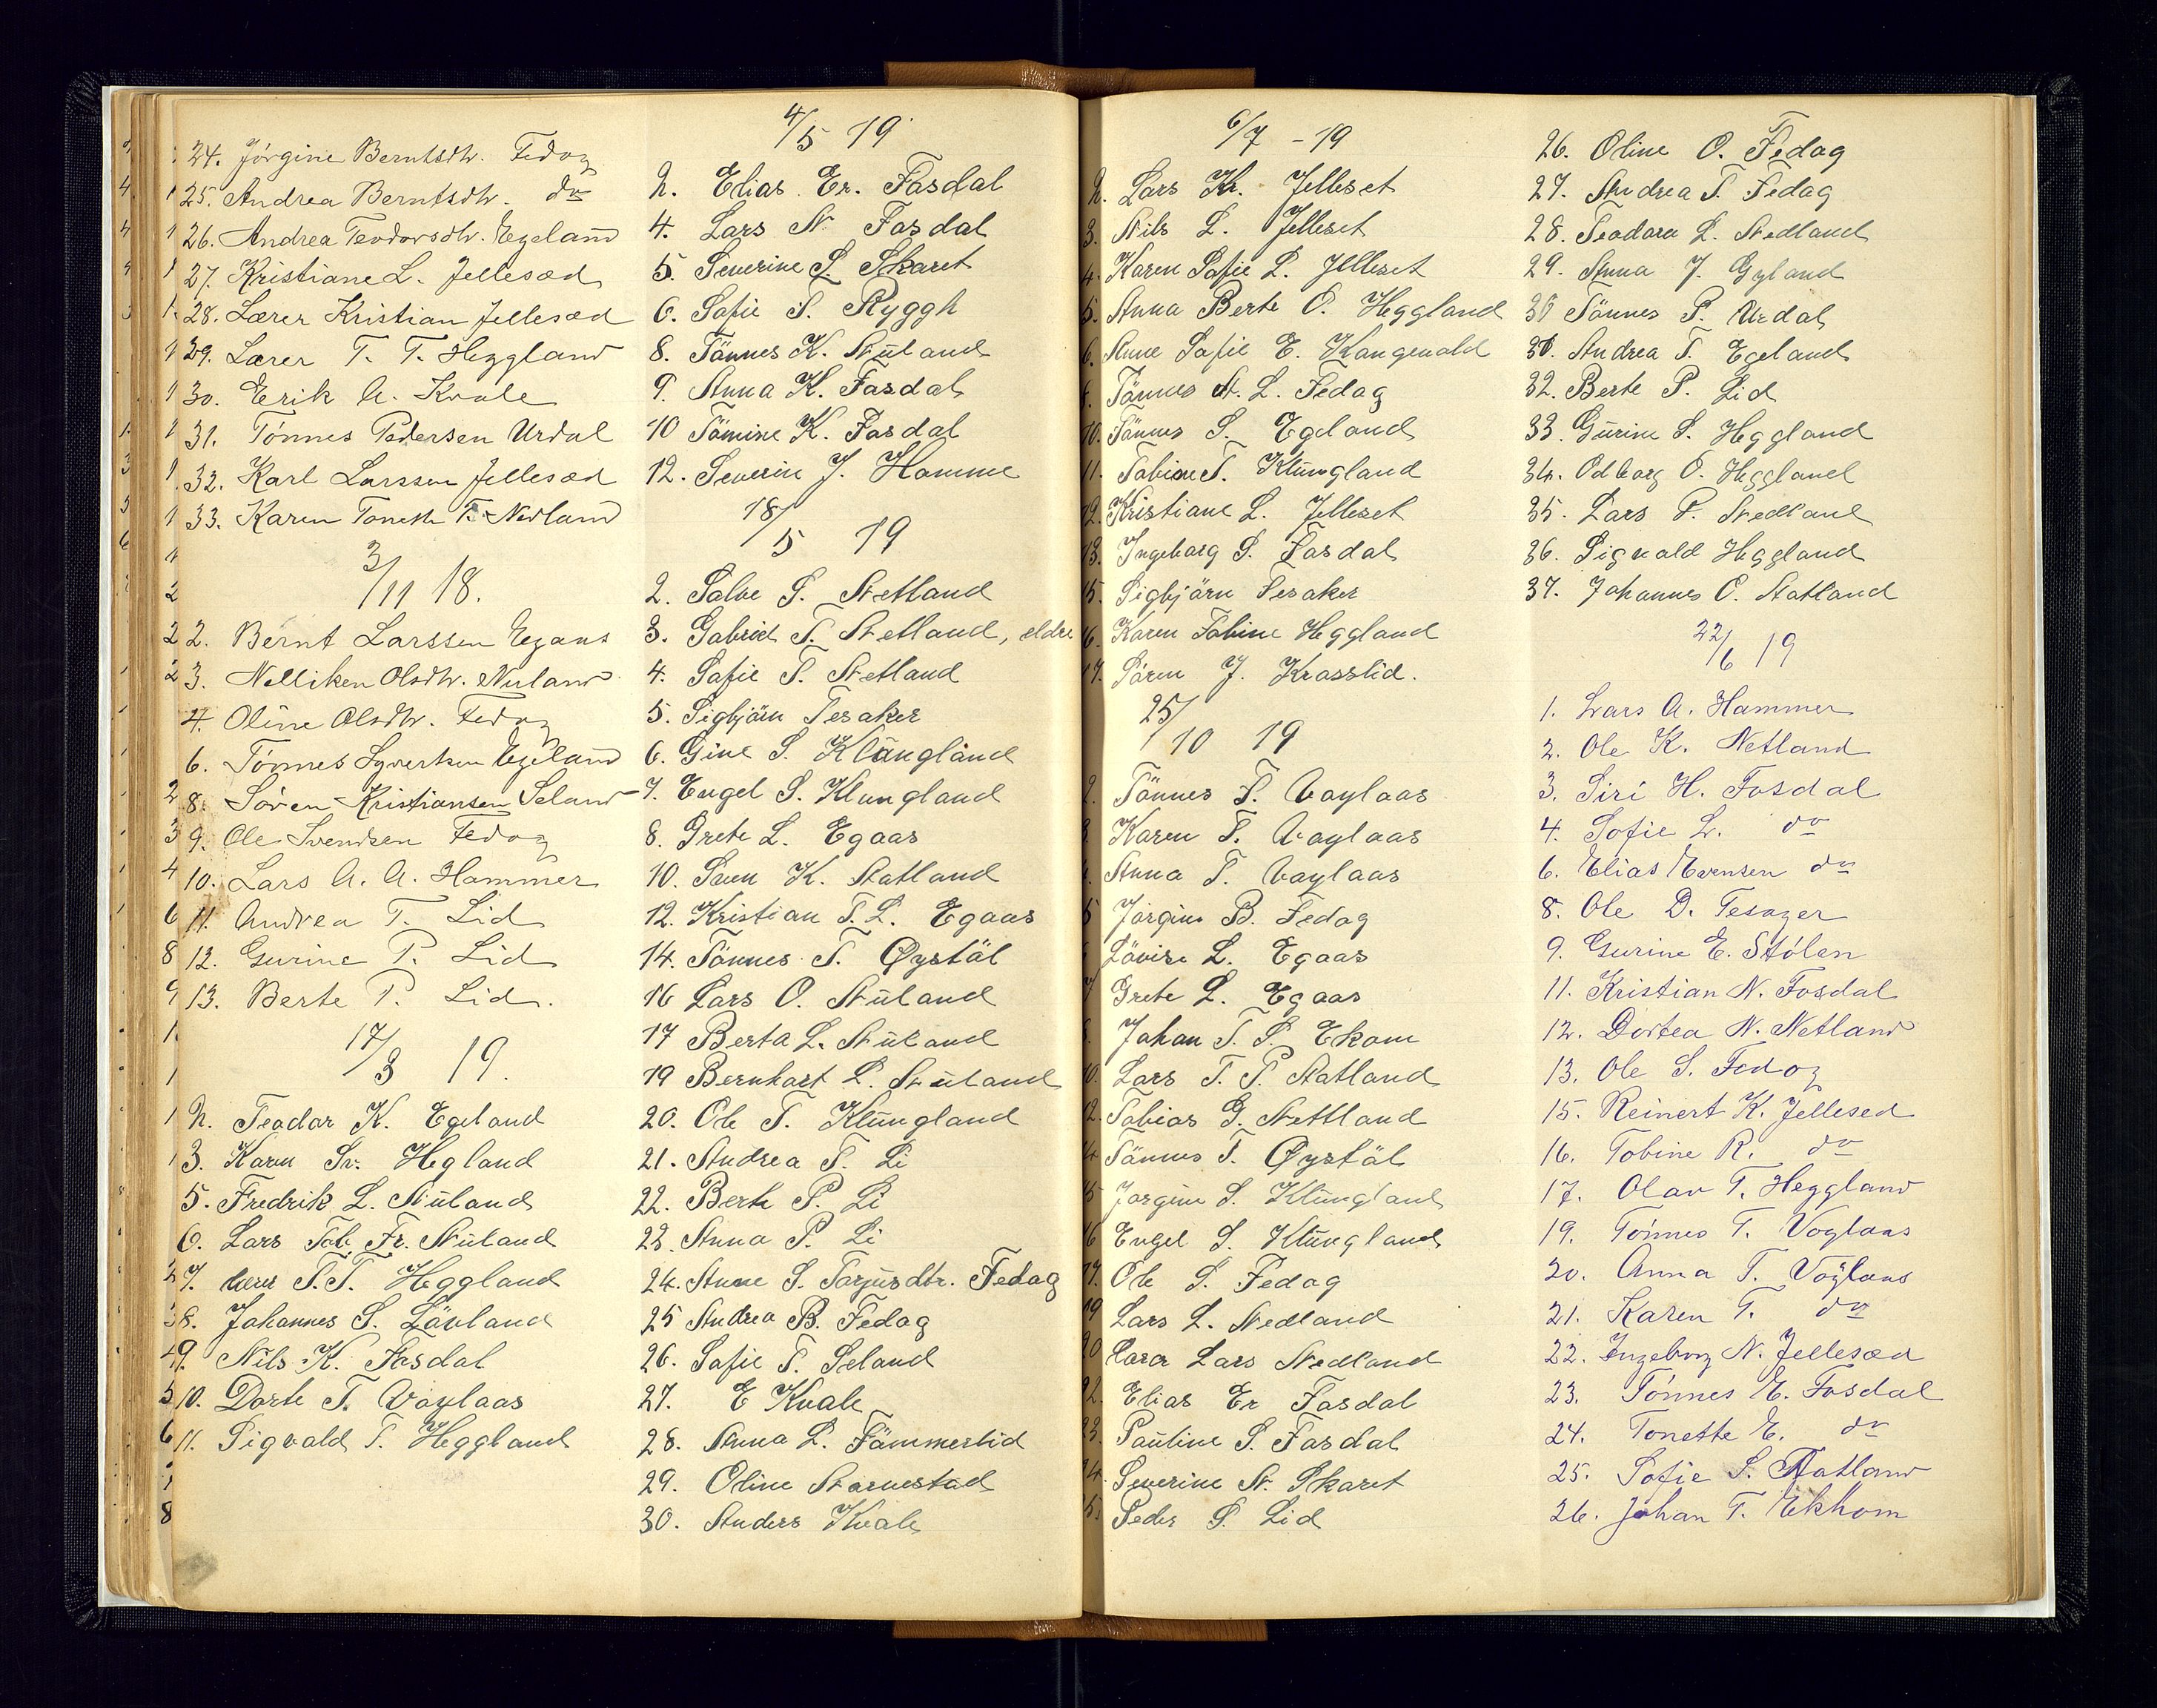 24. Jørgine Berntsdtr. Fedog
25. Andrea Berntsdtr. do
26. Andrea Teodorsdtr. Egeland
27. Kristiane L. Jellesæd
28. Lærer Kristian Jellesæd
29. Lærer T. T. Heggland
30. Erik A. Kvale
31. Tønnes Pedersen Urdal
32. Karl Larssen Jellesæd
33. Karen Toneth T. Nedland
3/11 18.
2. Bernt Larssen Egaas
3. Nelliken Olsdtr. Nuland
4. Oline Olsdtr. Fedog
6. Tønnes Syvertsen Egeland
8. Søren Kristiansen Seland
9. Ole Svendsen Fedog
10. Lars A. A. Hammer
11. Andrea T. Lid
12. Gurine P. Lid
13. Berte P. Lid.
17/3 19.
2. Teodor K. Egeland
3. Karen Sv. Hegland
5. Fredrik L. Nuland
6. Lars Tob. Fr. Nuland
7. lærer T. T. Heggland
8. Johannes S. Lövland
9. Nils K. Fosdal
10. Dorte T. Voglaas
11. Sigvald T. Heggland
4/5 19
2. Elias Er. Fosdal
4. Lars N. Fosdal
5. Severine S. Skaret
6. Sofie S. Ryggh
8. Tönnes K. Nuland
9. Anna K. Fosdal
10 Tömine K. Fosdal
12. Severin J. Homme
18/5 19
2. Salve S. Netland
3. Gabriel S. Netland, eldre
4. Sofie S. Netland
5. Sigbjörn Tesaker
6. Gine S. Klungland
7. Engel S. Klungland
8. Grete L. Egaas
10. Sven K. Statland
12. Kristian T. L. Egaas
14. Tönnes T. Øystöl
16 Lars O. Nuland
17 Berta L. Nuland
19 Bernhart L. Nuland
20. Ole T. Klungland
21. Andrea T. Li
22. Berte P. Li
23. Anna P. Li
24. Anne S. Torjusdtr. Fedog
25 Andrea B. Fedog
26. Sofie T. Seland
27. E Kvale
28. Anna L. Tömmerlid
29. Oline Narvestad
30. Anders Kvale
6/7 - 19
2. Lars Kr. Jelleset
3. Nils L. Jelleset
4. Karen Sofie L. Jelleset
5. Anna Berte O. Heggland
6. Anne Sofie E. Kongevold
Tönnes N. L. Fedog
10. Tönnes S. Egeland
11. Tobine T. Klungland
12. Kristiane L. Jelleset
13. Ingeborg S. Fosdal
15. Sigbjörn Tesaker
16. Karen Tobine Heggland
17. Sören J. Krosslid.
25/10 19
2. Tönnes T. Voglaas
3. Karen T. Voglaas
4. Anna T. Voglaas
5 Jörgine B. Fedog
Lövise L. Egaas
7 Grete L. Egaas
8. Johan T. S. Ekom
10. Lars T. P. Statland
12. Tobias G. Nettland
14 Tönnes T. Øystöl
15 Jorgine S. Klungland
16 Engel S. Klungland
17. Ole S. Fedog
19 Lars L. Nedland
20 Lærer Lars Nedland
22. Elias Er Fosdal
23. Pauline S. Fosdal
24. Severine N. Skaret
25. Peder S. Lid
26. Oline O. Fedog
27. Andrea T. Fedog
28. Teodora L. Nedland
29. Anna J. Gyland
30 Tönnes P. Urdal
30. Andrea T. Egeland
32. Berte P. Lid
33. Gurine S. Heggland
34. Odborg O. Heggland
35. Lars P. Nedland
36. Sigvald Heggland
37. Johannes O. Statland
22/6 19
1. Lars A. Hammer
2. Ole K. Netland
3. Siri H. Fosdal
4. Sofie L. do
6. Elias Evensen do
8. Ole D. Tesager
9. Gurine E. Stólen
11. Kristian N. Fosdal
12. Dortea N. Netland
13. Ole S. Fedog
15. Reinert K. Jellesed
16. Tobine R. do
17. Olav T. Heggland
19. Tónnes T. Voglaas
20. Anna T. Voglaas
21. Karen T. do
22. Ingeborg N. Jellesæd
23. Tónnes E. Fosdal
24. Tonette E. do
25. Sofie S. Statland
26. Johan T. Ekhom